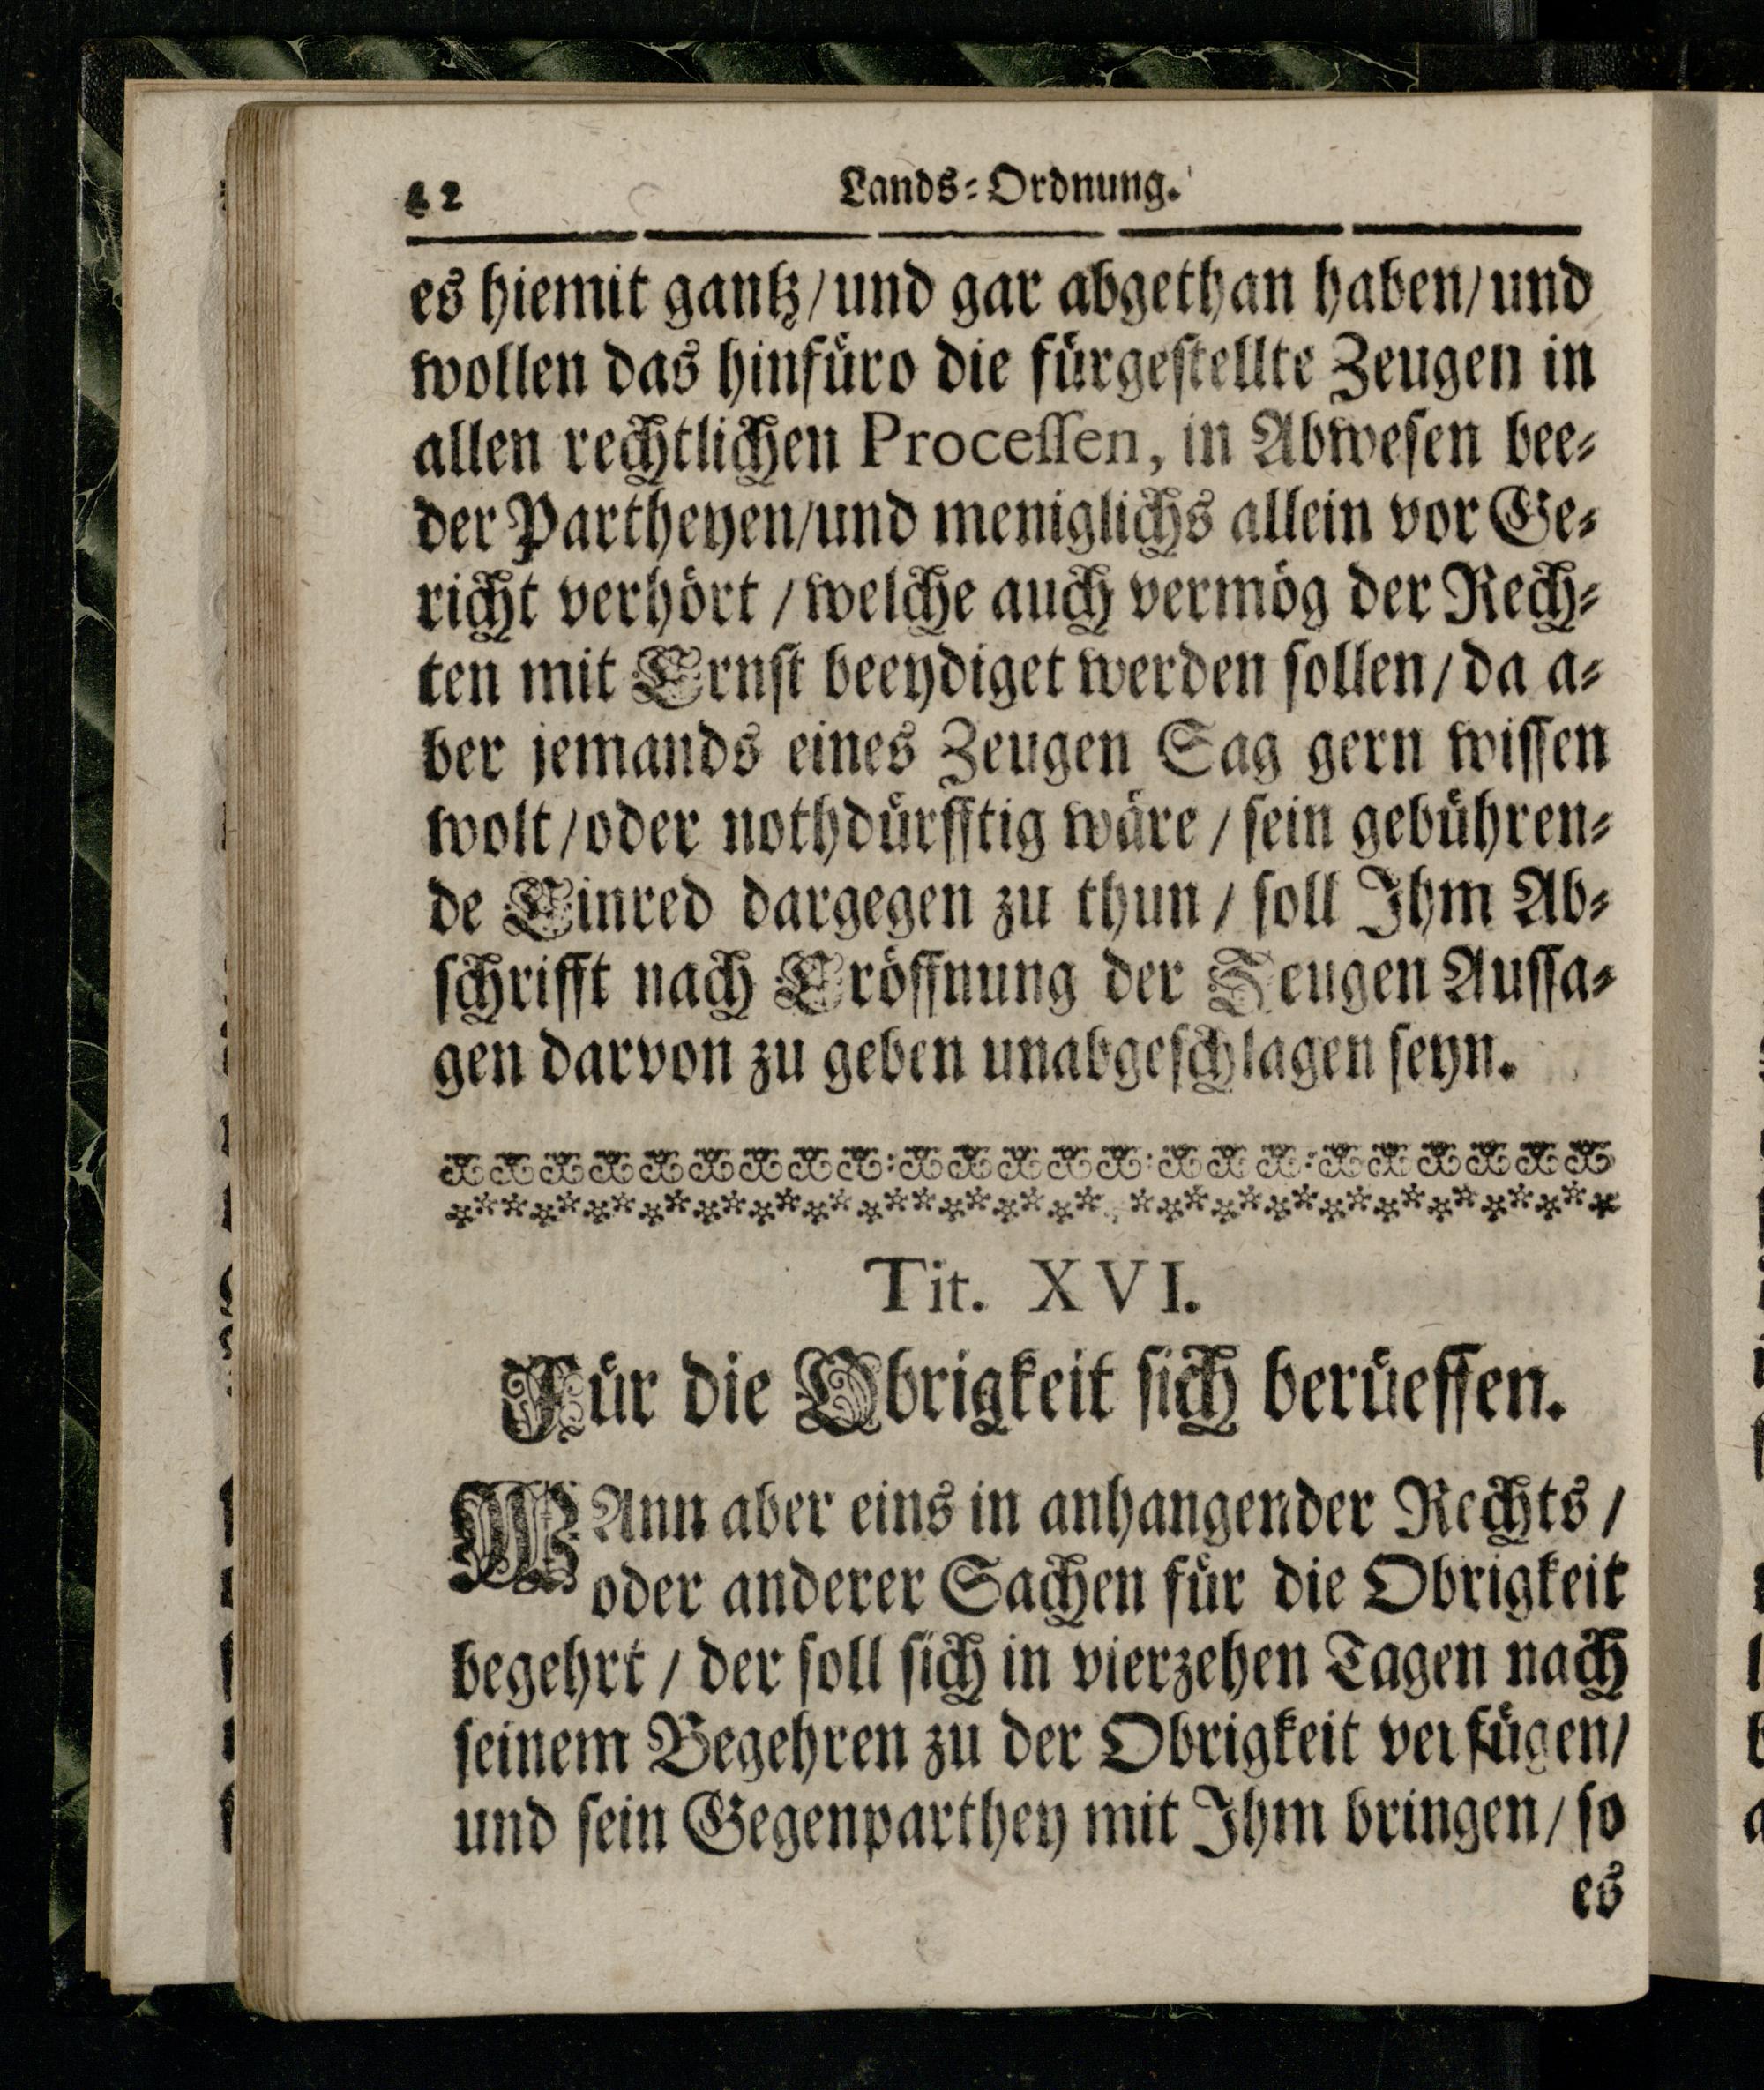 12 Lands-Ordnung.
es hiemit gantz/und gar abgethan haben/und
wollen das hinfüro die fürgestellte Zeugen in
allen rechtlichen Processen, in Abwesen bee-
der Partheyen/und meniglichs allein vor Ge-
richt verhört / welche auch vermög der Rech-
ten mit Ernst beeydiget werden sollen/da a-
ber jemands eines Zeugen Sag gern wissen
wolt/oder nothdürfftig wäre / sein gebühren-
de Einred dargegen zu thun / soll Ihm Ab-
schrifft nach Eröffnung der Zeugen Aussa-
gen darvon zu geben unabgeschlagen seyn.
Tit. XVI.
Für die Obrigkeit sich berüeffen.
WAnn aber eins in anhangender Rechts /
oder anderer Sachen für die Obrigkeit
begehrt / der soll sich in vierzehen Tagen nach
seinem Begehren zu der Obrigkeit verfügen/
und sein Gegenparthey mit Ihm bringen/ so
es